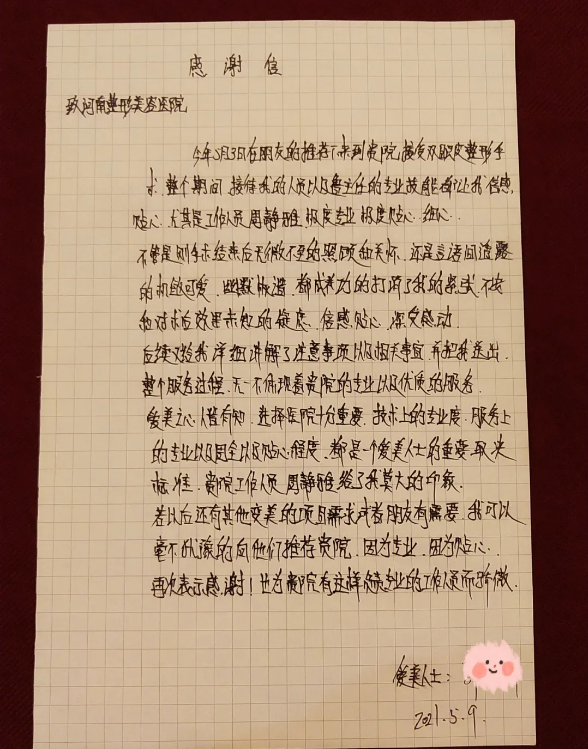 感谢信
致河南整形美容医院
今年5月3日在朋友的推荐下来到贵院,接受双眼皮整形手
术.整个期间,接待我的人员以及鲁主任的专业技能都让我倍感
贴心.尤其是工作人员周静雅,极度专业 极度贴心.细心.
不管是刚手术结束后无微不至的照顾和关怀.还是言语间透露
的机敏可爱.幽默板道.都成功的打消了我的紧张.不安
和对术后效果未知的疑虑.倍感贴心.深受感动.
后续又给我详细讲解了注意事项以及相关事宜.并把我送出.
整个服务过程.无一不体现着贵院的专业以及优质的服务.
爱美之心人皆有知.选择医院十分重要.技术上的专业度.服务上
的专业以及周全以及贴心程度.都是一个爱美人士的重要取决
标准.贵院工作人员 周静雅给了我莫大的印象.
若以后还有其他变美的项目需求或者朋友有需要.我可以
毫不犹豫的向他们推荐贵院.因为专业.因为贴心.
再次表示感谢!也为贵院有这样负责专业的工作人员而骄傲.
爱美人士:
2021.5.9.